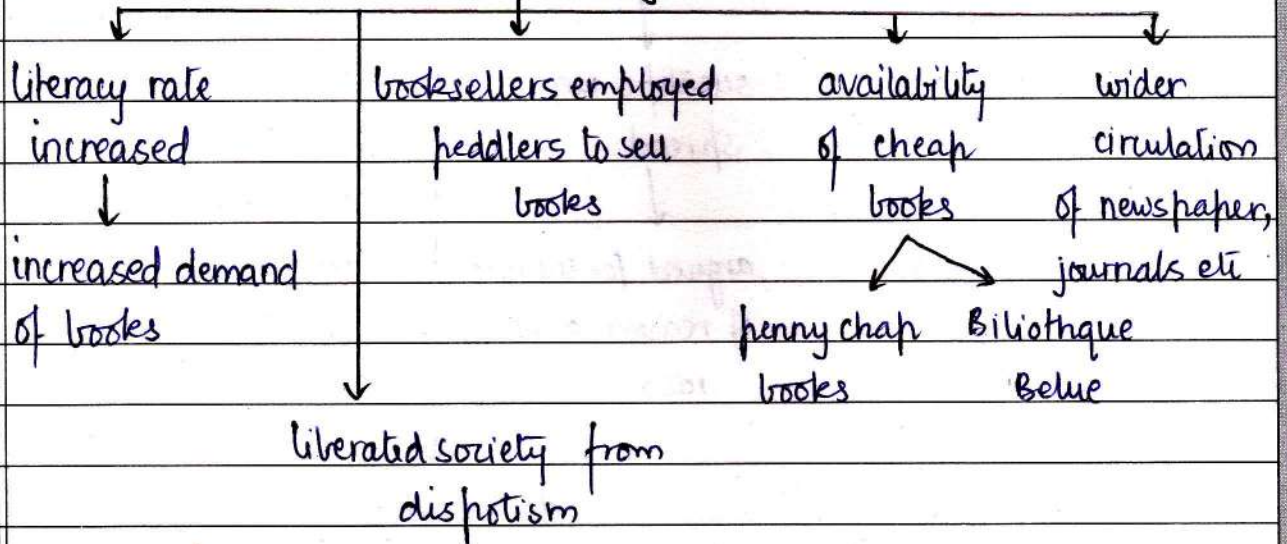 literacy rate
increased
increased demand
of books
booksellers employed
peddlers to sell
books
availability
of cheap
books
penny chap
books
Biliothque
Belue
wider
circulation
of newspaper,
journals etc
liberated society from
dispotism